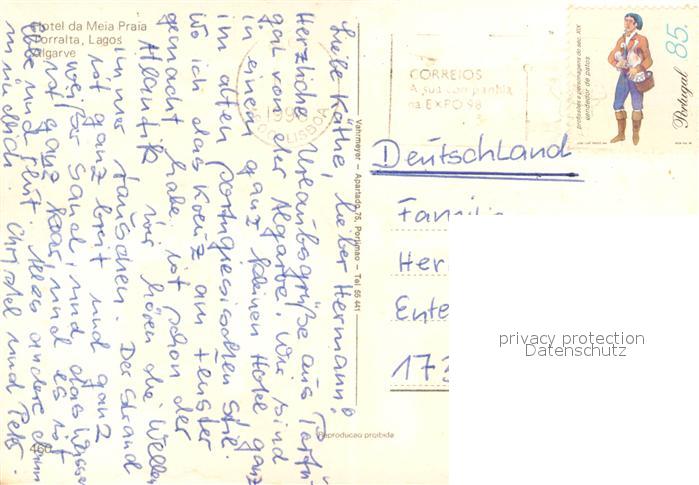 Hotel da Meia Praia
Torralta, Lagos
Algarve
Liebe Käthe, lieber Hermann!
Herzliche Urlaubsgrüße aus Portu-
gal von der Algarve. Wir sind
in einem ganz kleinen Hotel ganz
im alten portugiesischen Stil.
Wo ich das Kreuz am Fenster
gemacht habe ist schon der
Atlantik wir hören die Wellen
immer rauschen. Der Strand
ist ganz breit und ganz
weißer Sand, und das Wasser
ist ganz klar und es ist
Ebbe und Flut. Alles andere dann
mündlich. Christel und Peter.
460
Vahrmeyer – Apartado 75, Portimao – Tel 55 441
Reproducao proibida
1998
LISBOA
CORREIOS
A sua companhia
na EXPO 98
85.
Portugal
profissões e personagens do séc. XIX
vendedor de patos
Deutschland
Familie
Her
Ente
173
privacy protection
Datenschutz